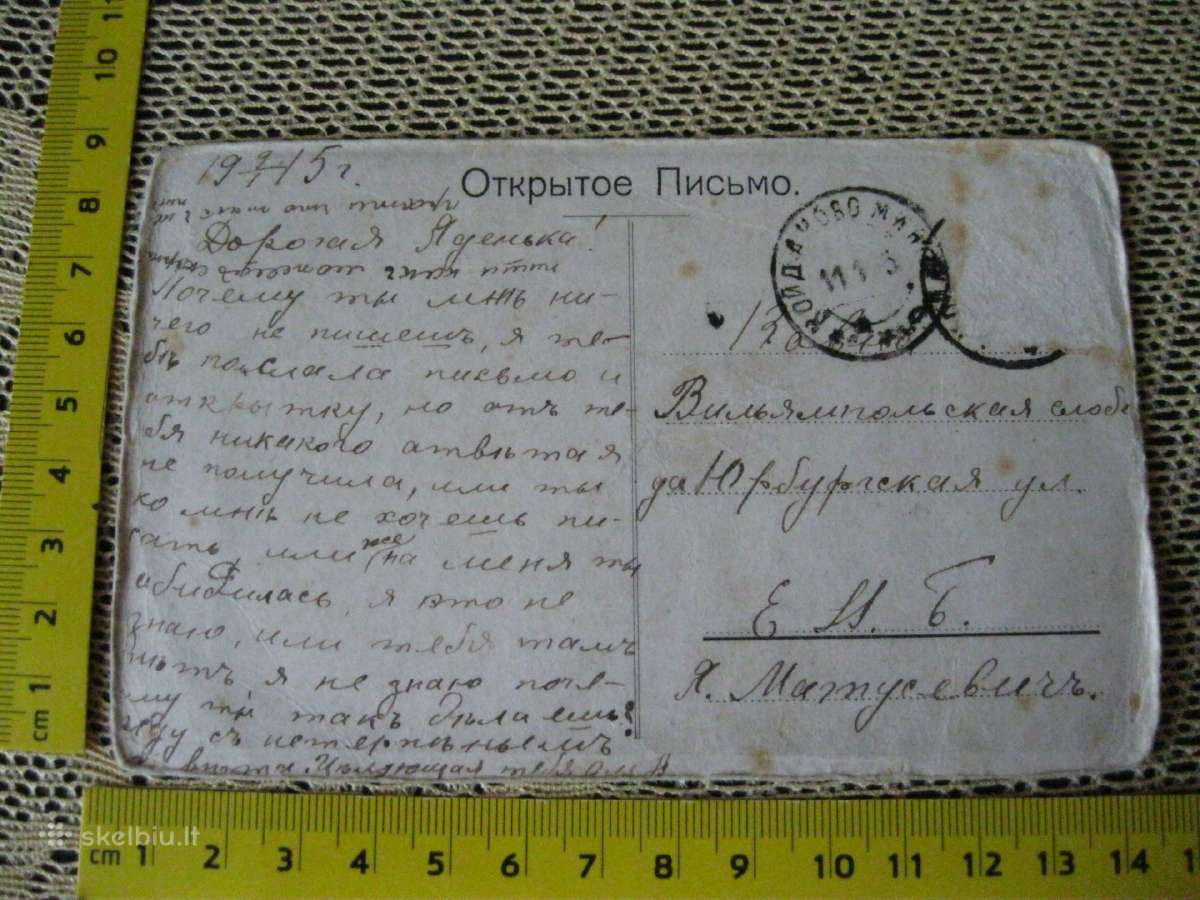 19 9/I 15 г.
Открытое Письмо.
Дорогая Яденька!
Почему ты мнѣ ни-
чего не пишешь, я те-
бѣ паслала письмо и
аткрытку, но отъ те-
бя никакого атвѣтая
не получила, или ты
ко мнѣ не хочешь пи-
сать, или же на меня ты
абидилась, я это не
знаю, или тебя тамъ
нѣтъ я не знаю поче-
му ты такъ дѣлаешь?
жду съ нетерпѣньемъ
Цѣлующая тебя
КОЙДАНОВО МИН
11 1
Вильямпольская слобо
да Юрбургская ул.
Е. М. Б.
Я. Матусевичъ.
cm 1 2 3 4 5 6 7 8 9 10 11
cm 1 2 3 4 5 6 7 8 9 10 11 12 13 14 15
skelbiu.lt